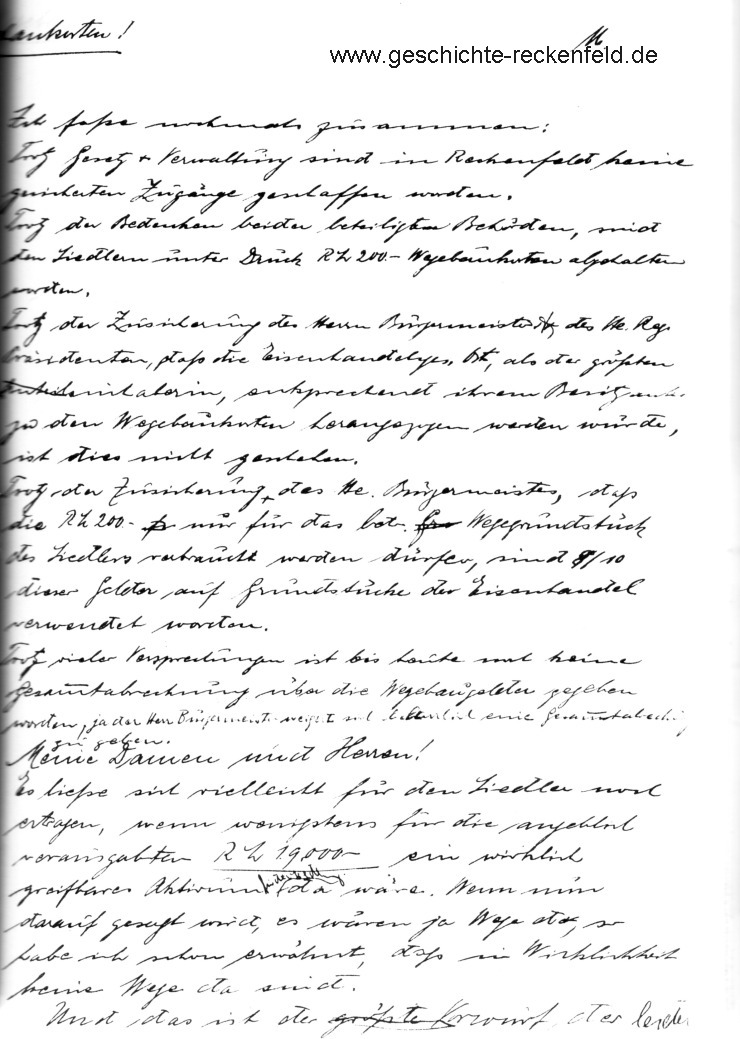 aukosten!
www.geschichte-reckenfeld.de
Ich faße nochmals zusammen:
Trotz Gesetz + Verwaltung sind in Reckenfeld keine
gesicherten Zugänge geschaffen worden.
Trotz der Bedenken beider beteiligten Behörden, sind
den Siedlern unter Druck RM 200.- Wegebaukosten abgehalten
worden.
Trotz der Zusicherung des Herrn Bürgermeister des He. Reg.
Präsidenten, daß die Eisenhandelges. Ost, als der größten
entsprechend ihrem
zu den Wegebaukosten herangezogen werden würde,
ist dies nicht geschehen.
Trotz der Zusicherung, des He. Bürgermeisters, daß
die RM 200.- nur für das betr. Wegegrundstück
des Siedlers verbraucht werden dürfen, sind 8/10
dieser Gelder auf Grundstücke der Eisenhandel
verwendet worden.
Trotz vieler Versprechungen ist bis heute noch keine
Gesamtabrechnung über die Wegebaugelder gegeben
worden, ja der Herr Bürgermeister weigert sich eine
zu geben.
Meine Damen und Herren!
Es ließe sich vielleicht für den Siedler noch
ertragen, wenn wenigstens für die angeblich
verausgabten RM 19,000.- ein wirklich
greifbares Aktivum da wäre. Wenn nun
darauf gesagt wird, es wären ja Wege da, so
habe ich schon erwähnt, daß in Wirklichkeit
keine Wege da sind.
Und das ist der größte Vorwurf, der leider